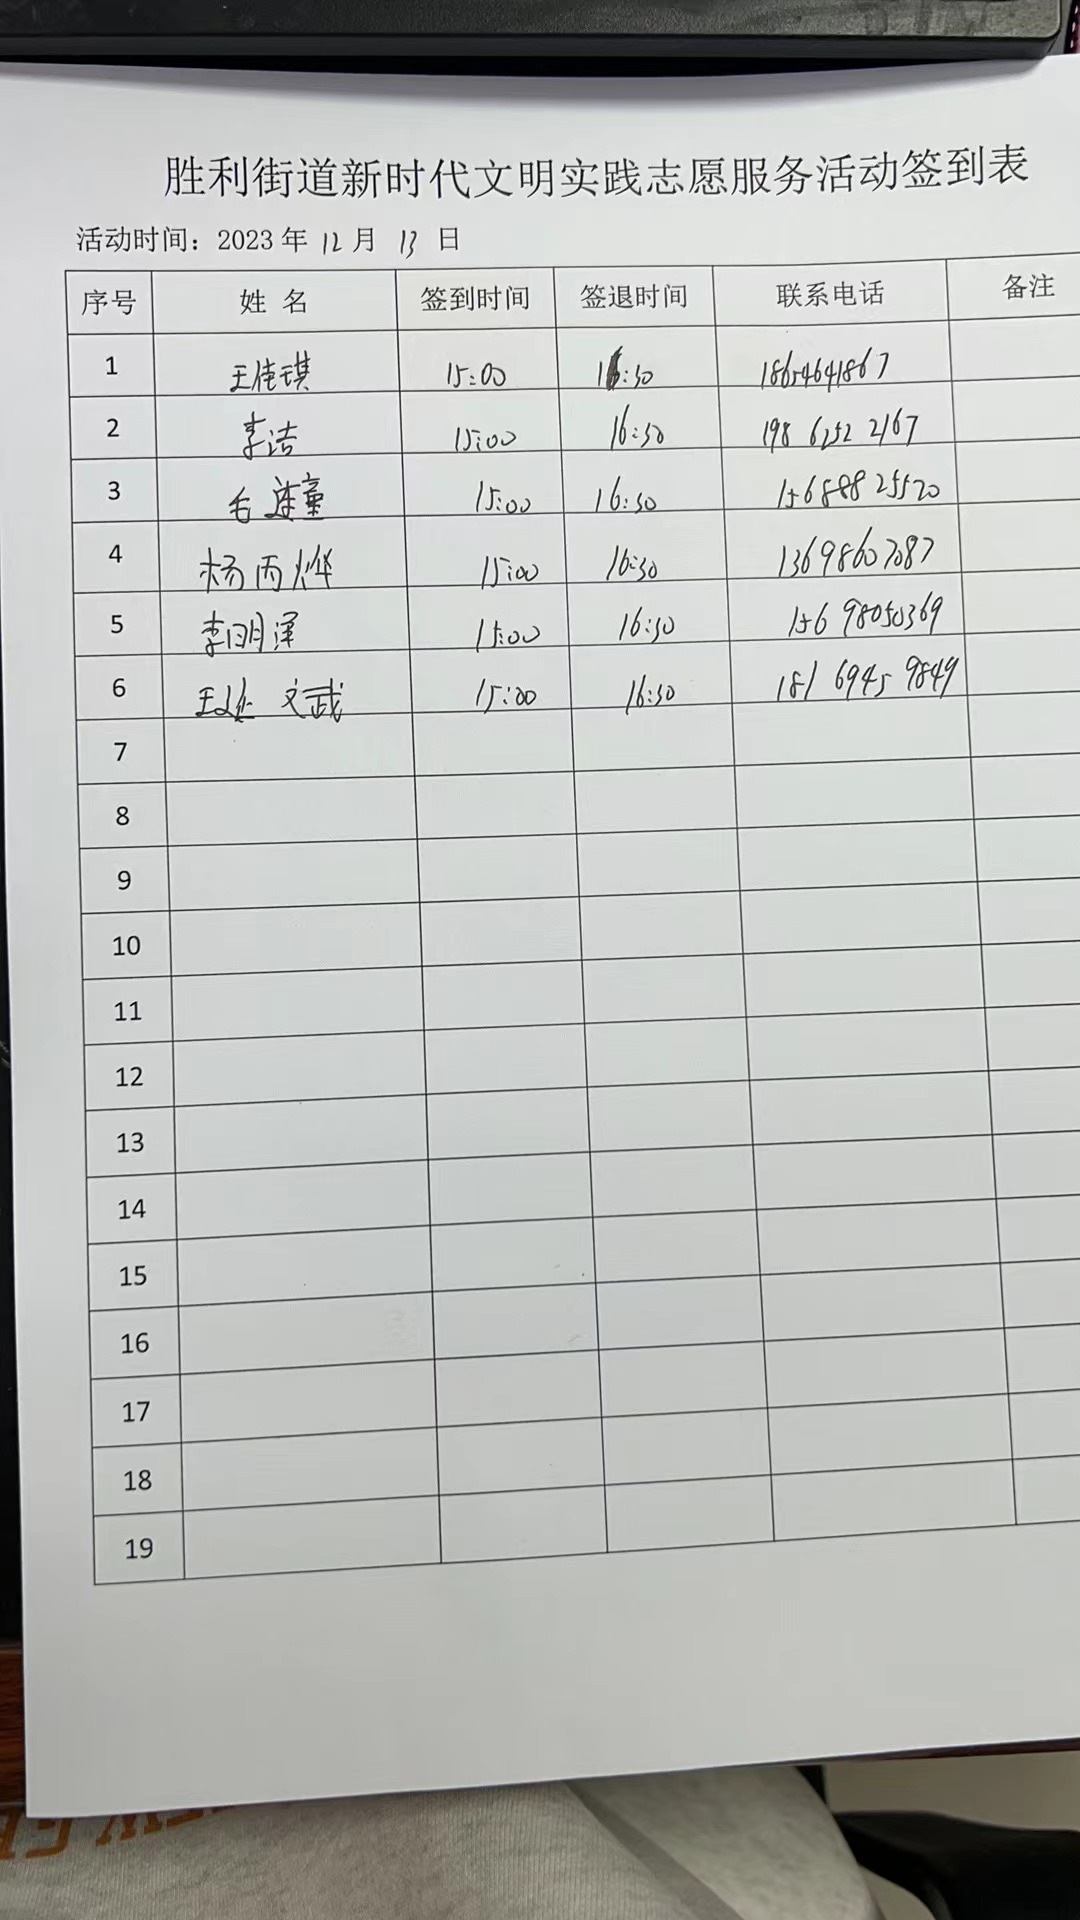 胜利街道新时代文明实践志愿服务活动签到表
活动时间：2023 年 12 月 13 日
序号 姓 名 签到时间 签退时间 联系电话 备注
1 王佳琪 15:00 16:30 18654641867
2 李洁 15:00 16:30 198 6252 2167
3 毛连童 15:00 16:30 15688825520
4 杨丙烨 15:00 16:30 13698607087
5 李明泽 15:00 16:30 156 98050369
6 文武 15:00 16:30 181 6945 9849
7
8
9
10
11
12
13
14
15
16
17
18
19